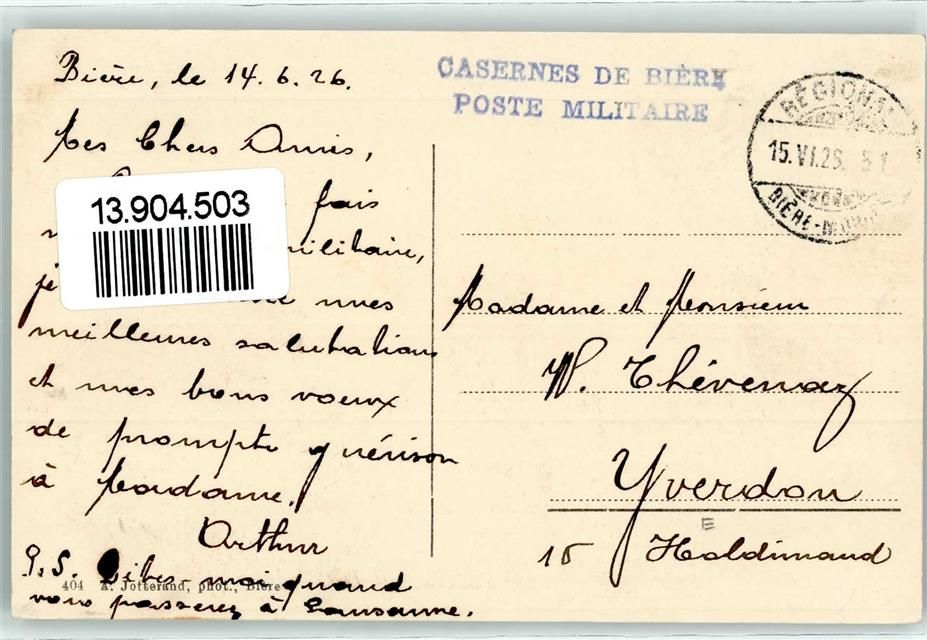 Bière, le 14.6.26.
Mes Chers Amis,
fais
militaire,
je mes
meilleures salutations
et mes bons voeux
de prompte guérison
à Madame.
Arthur
P.S. Dites-moi quand
vous passerez à Lausanne.
404 A. Jotterand, phot., Bière
13.904.503
CASERNES DE BIÈRE
POSTE MILITAIRE
RÉGIONAL
15.VI.26
BIÈRE-
Madame et Monsieur
W. Thévenaz
Yverdon
E
15 Haldimand